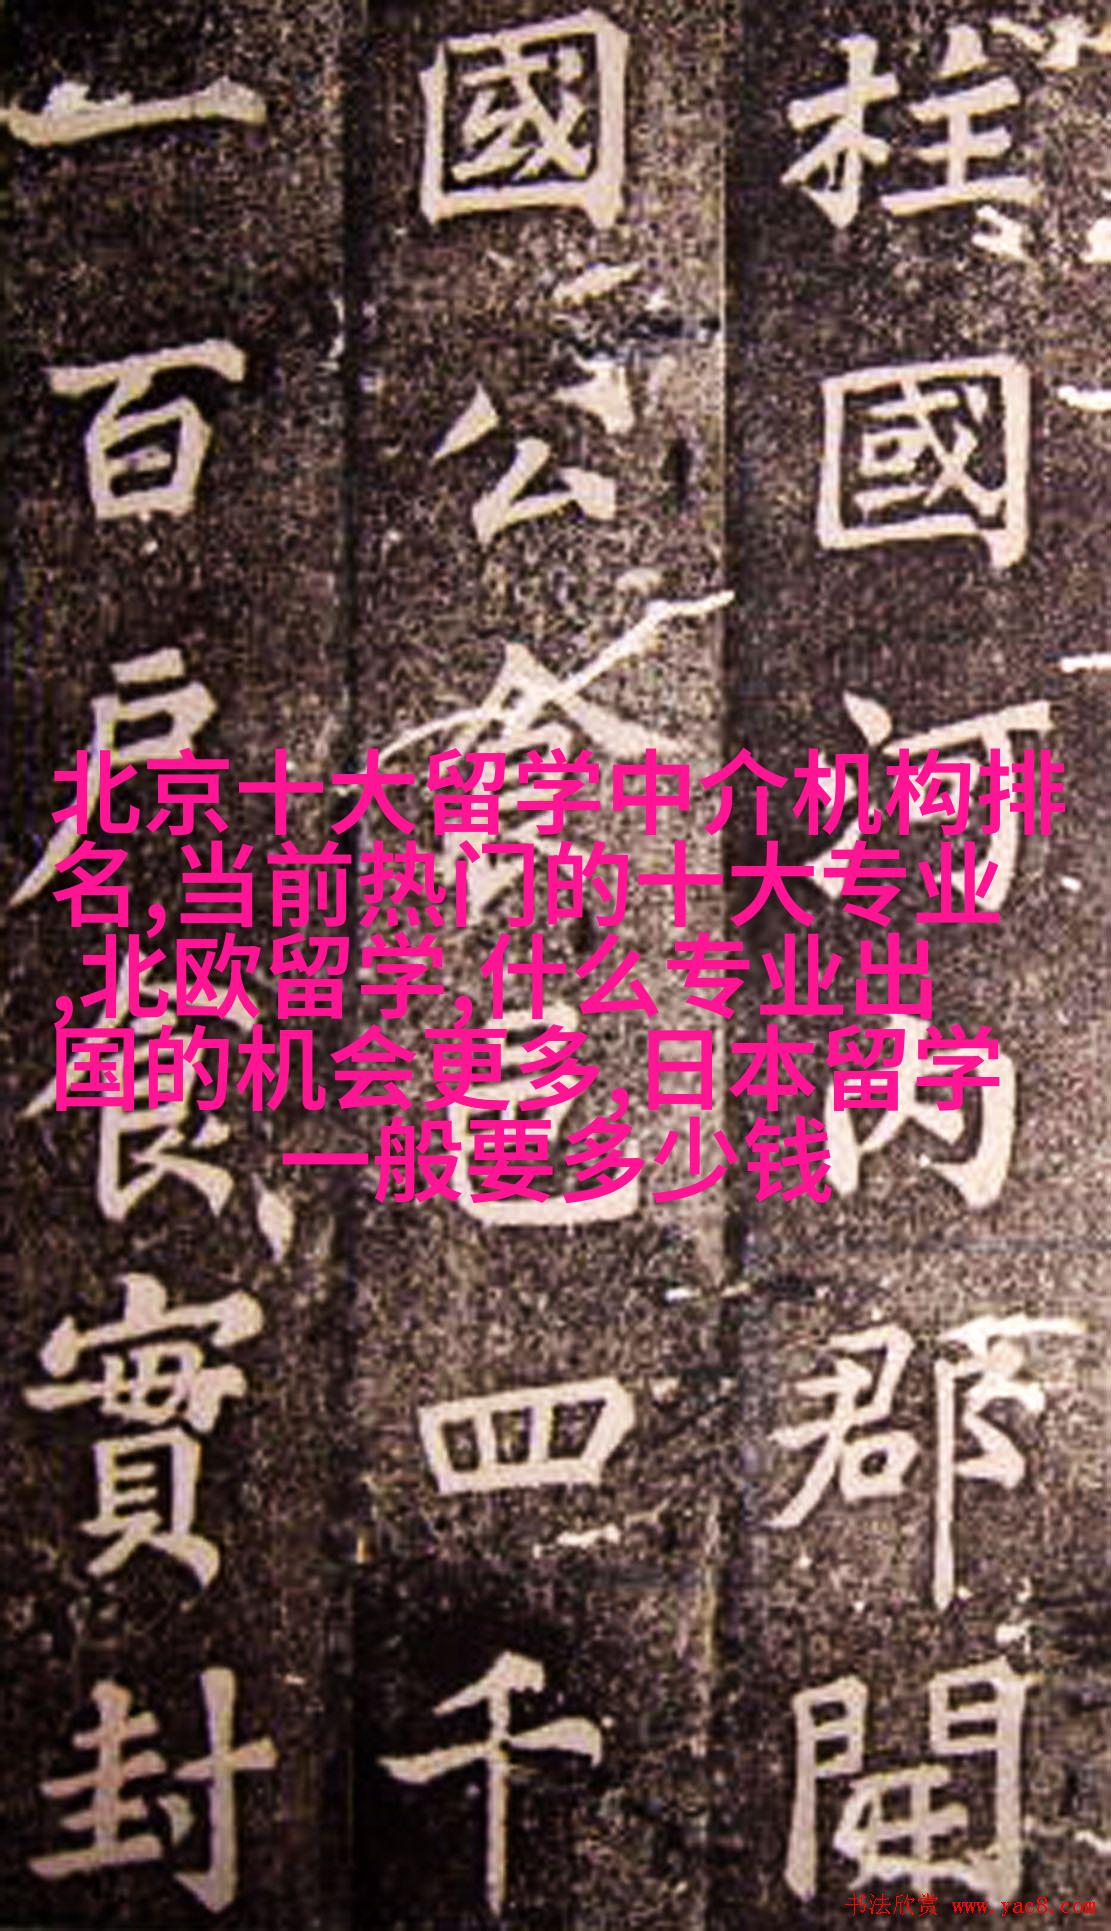 柱國河内郡開
國公食邑四千
一百戶食實封
北京十大留学中介机构排
名,当前热门的十大专业
,北欧留学,什么专业出
国的机会更多,日本留学
一般要多少钱
书法欣赏 www.yac8.com